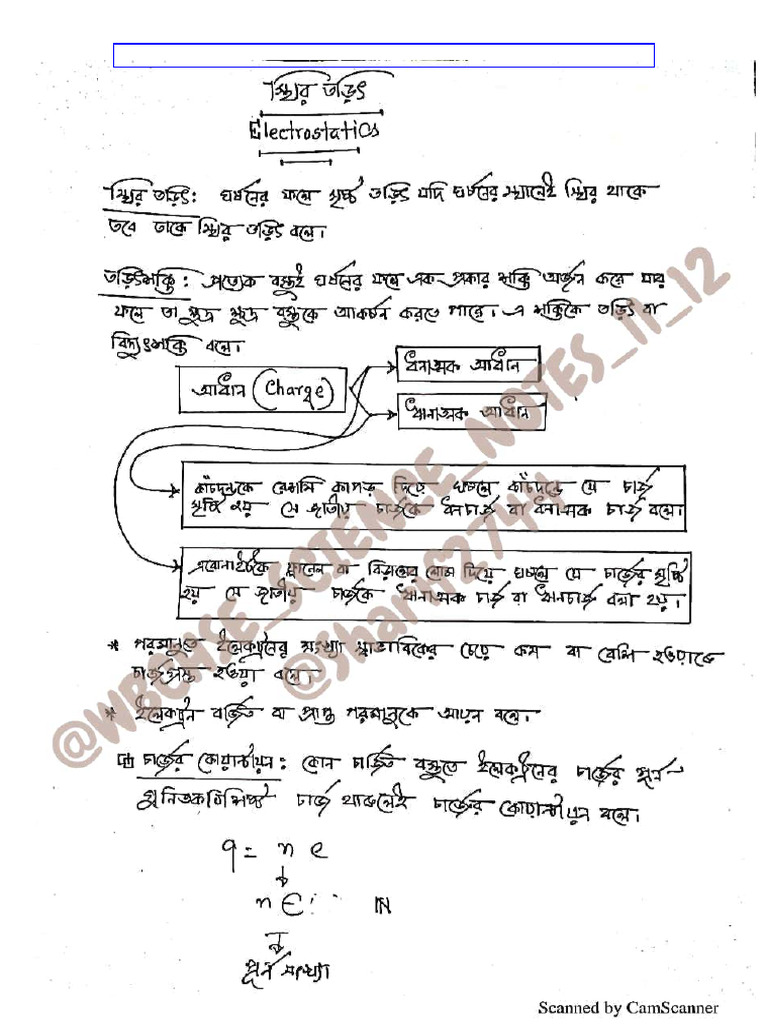 স্থির তড়িৎ
Electrostatics
স্থির তড়িৎ: ঘর্ষনের ফলে সৃষ্ট তড়িৎ যদি ঘর্ষনের স্থানেই স্থির থাকে
তবে তাকে স্থির তড়িৎ বলে।
তড়িৎশক্তি: প্রত্যেক বস্তুই ঘর্ষনের ফলে এক প্রকার শক্তি অর্জন করে যার
ফলে তা ক্ষুদ্র ক্ষুদ্র বস্তুকে আকর্ষন করতে পারে। এ শক্তিকে তড়িৎ বা
বিদ্যুৎশক্তি বলে।
আধান (Charge)
ধনাত্মক আধান
ঋনাত্মক আধান
কাঁচদন্ডকে রেশমি কাপড় দিয়ে ঘষলে কাঁচদন্ডে যে চার্জ
সৃষ্টি হয় সে জাতীয় চার্জকে ধনচার্জ বা ধনাত্মক চার্জ বলে।
এবোনাইটকে ফ্লানেল বা বিড়ালের লোম দিয়ে ঘষলে যে চার্জের সৃষ্টি
হয় সে জাতীয় চার্জকে ঋনাত্মক চার্জ বা ঋনচার্জ বলা হয়।
* পরমানুতে ইলেকট্রনের সংখ্যা স্বাভাবিকের চেয়ে কম বা বেশি হওয়াকে
চার্জগ্রস্ত হওয়া বলে।
* ইলেকট্রন বর্জিত বা প্রাপ্ত পরমানুকে আয়ন বলে।
চার্জের কোয়ান্টায়ন: কোন চার্জিত বস্তুতে ইলেকট্রনের চার্জের পূর্ন
গুনিতক চার্জ থাকলেই চার্জের কোয়ান্টায়ন বলে।
q = n e
n ∈ ℕ
পূর্ন সংখ্যা
@WBCHSE_SCIENCE_NOTES_11_12
Scanned by CamScanner